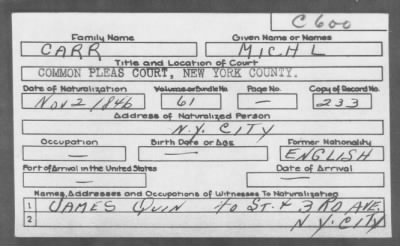 C600
Family Name Given Name or Names
CARR MICHL
Title and Location of Court
COMMON PLEAS COURT, NEW YORK COUNTY.
Date of Naturalization Volume or Bundle No. Page No. Copy of Record No.
NOV 2 1846 61 — 233
Address of Naturalized Person
N.Y. CITY
Occupation Birth Date or Age Former Nationality
— — ENGLISH
Port of Arrival in the United States Date of Arrival
— —
Names, Addresses and Occupations of Witnesses To Naturalization
1 JAMES QUIN ST. & 3RD AVE
2 N.Y. CITY